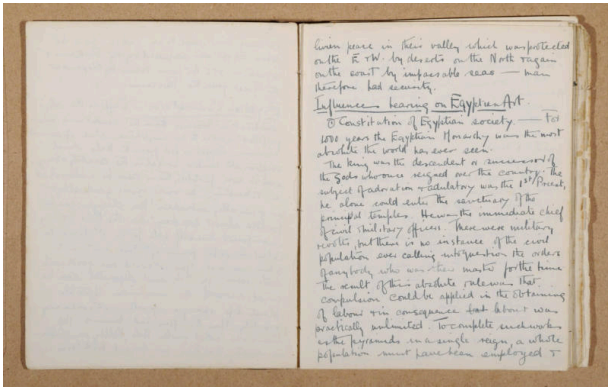 living peace in their valley which was protected
on the E & W. by deserts on the North & again
on the coast by impassable seas — man
therefore had security.
Influences bearing on Egyptian Art.
① Constitution of Egyptian society. — For
1000 years the Egyptian Monarchy was the most
absolute the world has ever seen.
The King was the descendent or successor of
the Gods who once reigned over the country. The
subject of adoration & adulatory was the 1st Priest,
he alone could enter the sanctuary of the
principal temples. He was the immediate chief
of civil & military officers. There were military
revolts, but there is no instance of the civil
population ever calling into question the orders
of anybody who was their master for the time
The result of this absolute rule was that
compulsion could be applied in the obtaining
of labour & in consequence labour was
practically unlimited. To complete such works
as the pyramids in a single reign, a whole
population must have been employed &